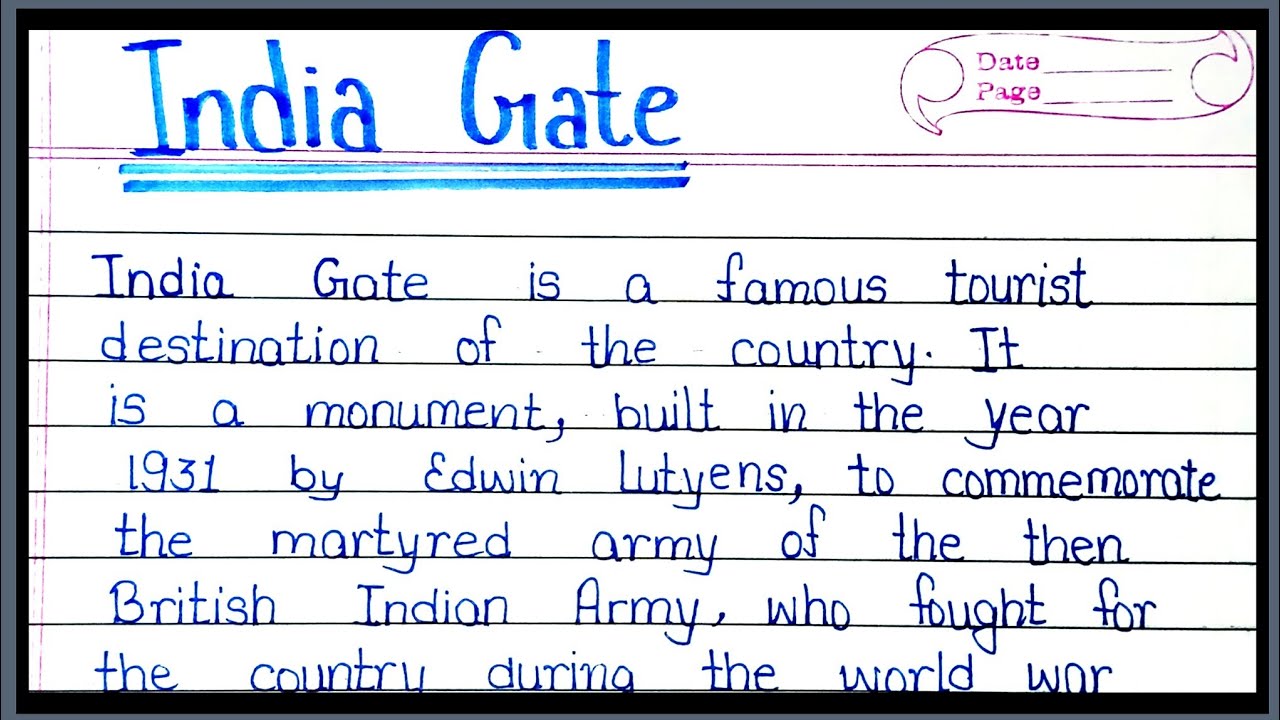 India Gate
Date
Page
India Gate is a famous tourist
destination of the country. It
is a monument, built in the year
1931 by Edwin Lutyens, to commemorate
the martyred army of the then
British Indian Army, who fought for
the country during the world war